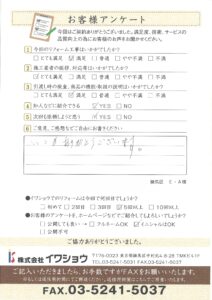 お客様アンケート
今回はご契約ありがとうございました。満足度、提案、サービスの
品質向上の為にお客様のお声をお聞かせください。
1 今回のリフォーム工事はいかがでしたか？
□とても満足 □満足 □普通 □やや不満 □不満
2 施工業者の挨拶、対応等はいかがでしたか？
□とても満足 □満足 □普通 □やや不満 □不満
3 引渡し時の検査、商品の機能・取扱の説明はいかがでしたか？
□とても満足 □満足 □普通 □やや不満 □不満
4 知人などに紹介できる YES □NO
5 次回も依頼しようと思う YES □NO
6 ご意見、ご感想などご自由にお書きください
ありがとうございます。
練馬区 E・A様
●イワショウでのリフォームは今回で何回目でしょうか？
□初めて □2回目 □5回以上 □10回以上
●お客様のアンケートを、ホームページなどでご紹介してもよろしいでしょうか？
□公開しても良い □アルネームOK イニシャルOK
□公開不可
ご協力ありがとうございました。
株式会社イワショウ
〒176-0023 東京都練馬区中村北4-2-8 TMKビル1F
TEL.03-5241-5051 FAX.03-5241-5037
ご記入いただきましたら、お手数ですがFAXをお願いいたします。
FAX.03-5241-5037